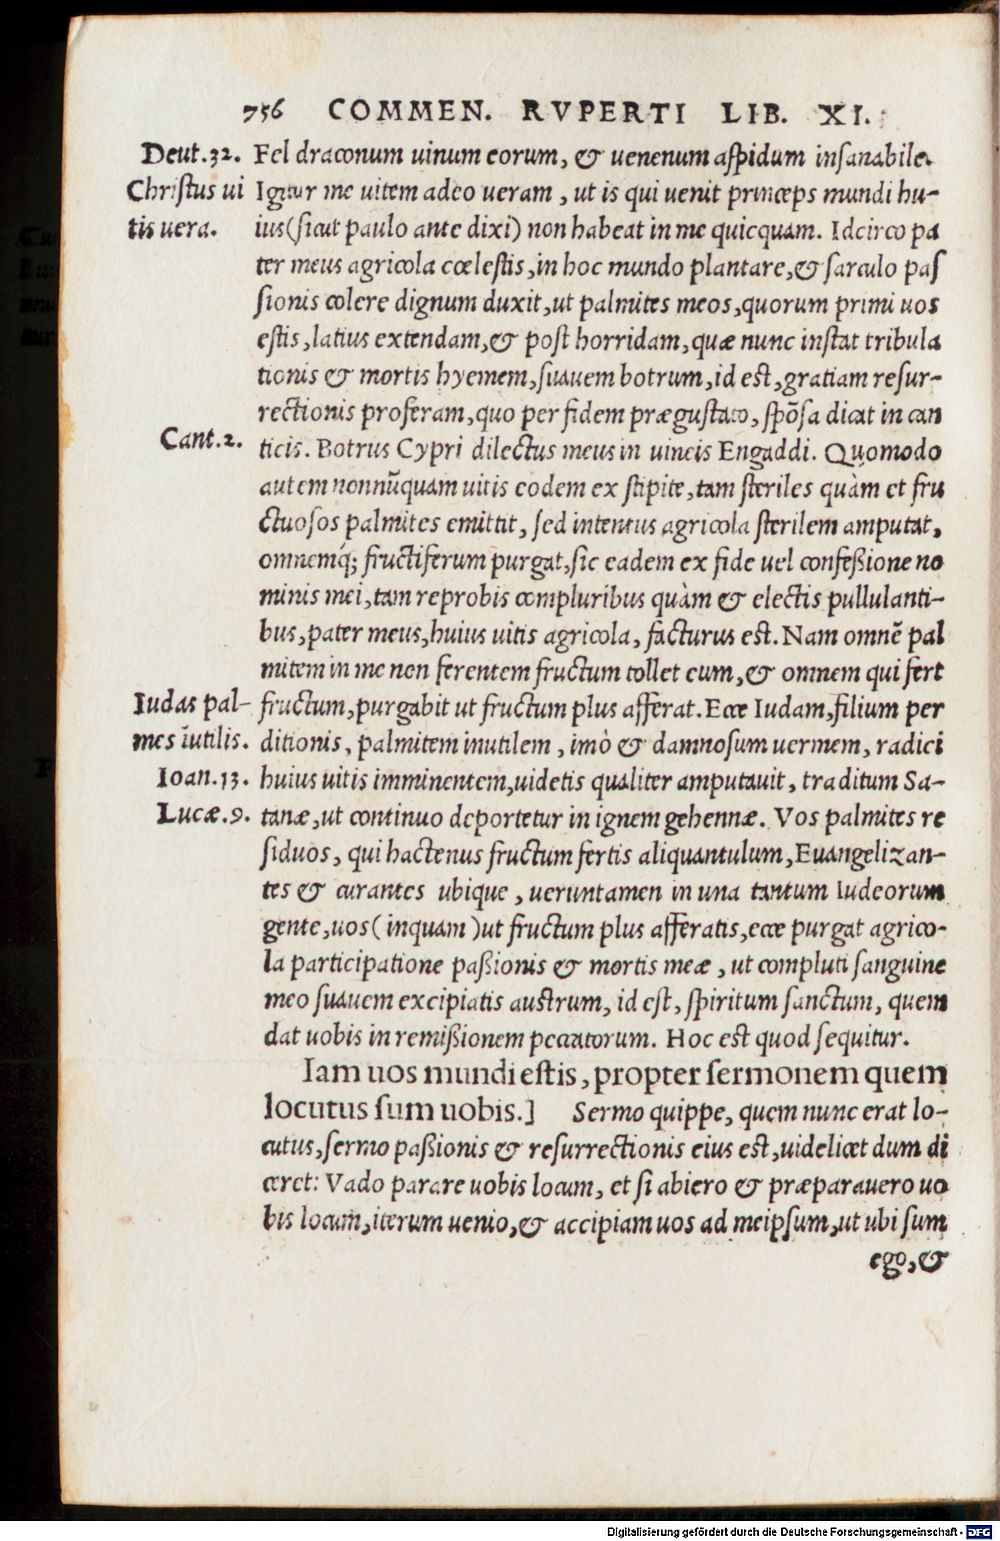 756 COMMEN. RVPERTI LIB. XI.
Deut.32. Fel draconum uinum eorum, & uenenum aspidum insanabile.
Christus ui Igitur me uitem adeo ueram, ut is qui uenit princeps mundi hu-
tis uera. ius(sicut paulo ante dixi) non habeat in me quicquam. Idcirco pa
ter meus agricola cœlestis, in hoc mundo plantare, & sarculo pas
sionis colere dignum duxit, ut palmites meos, quorum primi uos
estis, latius extendam, & post horridam, quæ nunc instat tribula
tionis & mortis hyemem, suauem botrum, id est, gratiam resur-
rectionis proferam, quo per fidem prægustato, spõsa dicat in can
Cant.2. ticis. Botrus Cypri dilectus meus in uineis Engaddi. Quomodo
autem nonnũquam uitis eodem ex stipite, tam steriles quàm et fru
ctuosos palmites emittit, sed intentus agricola sterilem amputat,
omnemq́; fructiferum purgat, sic eadem ex fide uel confeßione no
minis mei, tam reprobis compluribus quàm & electis pullulanti-
bus, pater meus, huius uitis agricola, facturus est. Nam omnẽ pal
mitem in me non ferentem fructum tollet eum, & omnem qui fert
Iudas pal- fructum, purgabit ut fructum plus afferat. Ecce Iudam, filium per
mes ĩutilis. ditionis, palmitem inutilem, imò & damnosum uermem, radici
Ioan.13. huius uitis imminentem, uidetis qualiter amputauit, traditum Sa-
Lucæ.9. tanæ, ut continuo deportetur in ignem gehennæ. Vos palmites re
siduos, qui hactenus fructum fertis aliquantulum, Euangelizan-
tes & curantes ubique, ueruntamen in una tantum Iudeorum
gente, uos (inquam) ut fructum plus afferatis, ecce purgat agrico-
la participatione paßionis & mortis meæ, ut compluti sanguine
meo suauem excipiatis austrum, id est, spiritum sanctum, quem
dat uobis in remißionem peccatorum. Hoc est quod sequitur.
Iam uos mundi estis, propter sermonem quem
locutus sum uobis.] Sermo quippe, quem nunc erat lo-
cutus, sermo paßionis & resurrectionis eius est, uidelicet dum di
ceret: Vado parare uobis locum, et si abiero & præparauero uo
bis locum, iterum uenio, & accipiam uos ad meipsum, ut ubi sum
ego, &
Digitalisierung gefördert durch die Deutsche Forschungsgemeinschaft - DFG